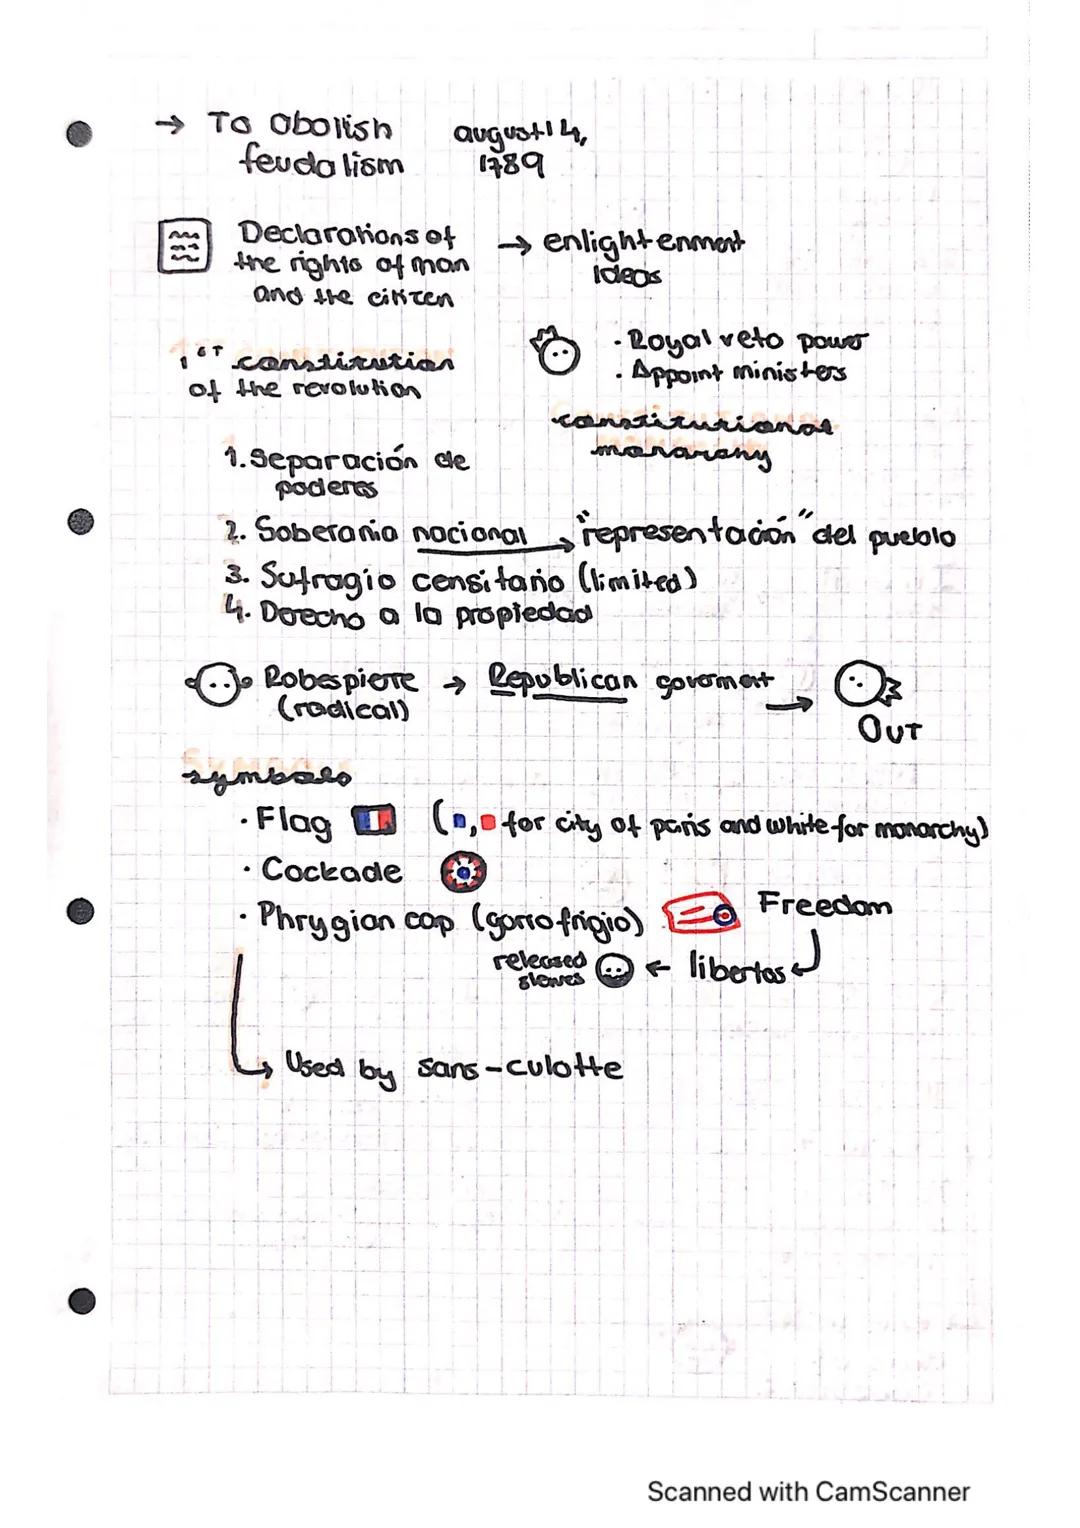 → To abolish feudalism august 14, 1789
Declarations of the rights of man and the citizen → enlightenment ideas
1st constitution of the revolution
· Royal veto power
· Appoint ministers
constitutional monarany
1. Separación de poderes
2. Soberania nacional → "representación" del pueblo
3. Sufragio censitario (limited)
4. Derecho a la propiedad
Robespierre (radical) → Republican goverment → OUT
symbols
· Flag ( , for city of paris and white for monarchy)
· Cockade
· Phrygian cap (gorro frigio) Freedom
released slaves ← libertas
↳ Used by sans-culotte
Scanned with CamScanner